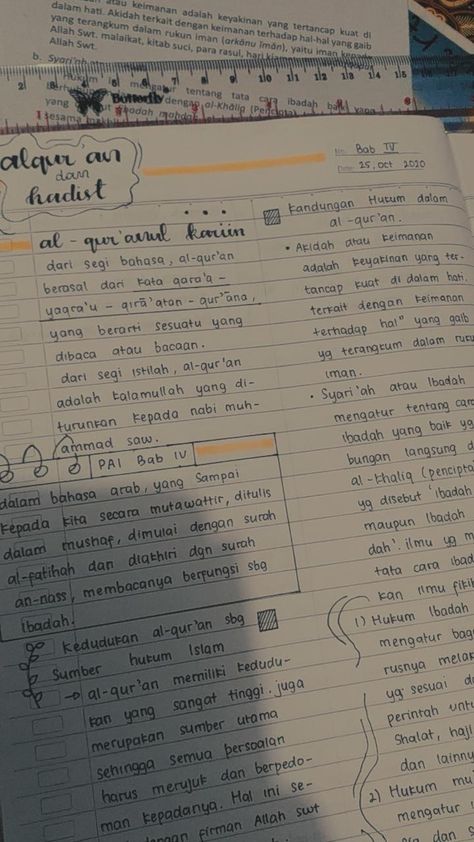 atau keimanan adalah keyakinan yang tertancap kuat di
dalam hati. Akidah terkait dengan keimanan terhadap hal-hal yang gaib
yang terangkum dalam rukun iman (arkānu īmān), yaitu iman kepada
Allah Swt. malaikat, kitab suci, para rasul, hari
Allah Swt.
b. Syari'ah
Hukum ini mengatur tentang tata cara ibadah baik yang
yang dengan al-Khāliq (Pencipta)
sesama ibadah mahdah
Butterfly
alqur an
dan
hadist
No. Bab IV
Date. 25, oct 2020
al - qur'anul kariin
dari segi bahasa, al-qur'an
berasal dari kata qara'a -
yaqra'u - qirā'atan - qur'āna,
yang berarti sesuatu yang
dibaca atau bacaan.
dari segi istilah, al-qur'an
adalah kalamullah yang di-
turunkan kepada nabi muh-
ammad saw.
PAI Bab IV
dalam bahasa arab, yang sampai
kepada kita secara mutawattir, ditulis
dalam mushaf, dimulai dengan surah
al-fatihah dan diakhiri dgn surah
an-nass, membacanya berfungsi sbg
ibadah.
Kedudukan al-qur'an sbg
Sumber hukum Islam
→ al-qur'an memiliki kedudu-
kan yang sangat tinggi. juga
merupakan sumber utama
sehingga semua persoalan
harus merujuk dan berpedo-
man kepadanya. Hal ini se-
dengan firman Allah swt
Kandungan Hukum dalam
al-qur'an.
• Akidah atau keimanan
adalah keyakinan yang ter-
tancap kuat di dalam hati.
terkait dengan keimanan
terhadap hal" yang gaib
yg terangkum dalam
iman.
• Syari'ah atau Ibadah
mengatur tentang cara
ibadah yang baik
bungan langsung
al-khaliq (pencipta
yg disebut 'ibadah
maupun ibadah
dah'. ilmu yg
tata cara
kan ilmu
1) Hukum Ibadah
mengatur
rusnya
yg sesuai
perintah
Shalat, haji
dan
2) Hukum
mengatur